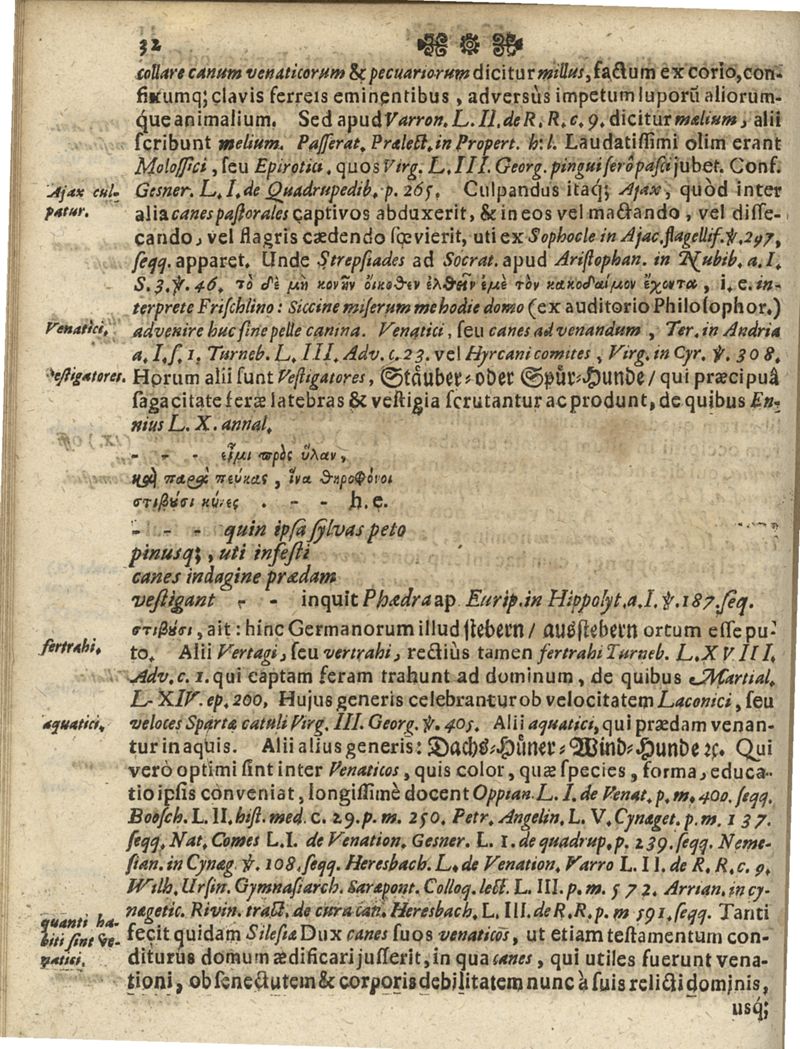 32
collare canum venaticorum & pecuariorum dicitur millus, factum ex corio, con-
fixumq; clavis ferreis eminentibus, adversùs impetum luporũ aliorum-
que animalium. Sed apud Varron. L. II. de R. R. c. 9. dicitur mælium, alii
ſcribunt melium. Paſſerat. Prælect. in Propert. h: l. Laudatiſſimi olim erant
Moloſſici, ſeu Epirotici, quos Virg. L. III. Georg. pingui ſerô paſci jubet. Conf.
Ajax cul- Gesner. L. I. de Quadrupedib. p. 265. Culpandus itaq; Ajax, quòd inter
patur. alia canes paſtorales captivos abduxerit, & in eos vel mactando, vel diſſe-
cando, vel flagris cædendo ſœvierit, uti ex Sophocle in Ajac. flagellif. ꝟ. 297.
ſeqq. apparet. Unde Strepſiades ad Socrat. apud Ariſtophan. in Nubib. a. I.
S. 3. ꝟ. 46. τὸ δὲ μὴ κονῆν οἴκοθεν ἐλθεῖν ἐμὲ τὸν κακοδαίμον ἔχοντα, i. e. in-
terprete Friſchlino: Siccine miſerum me hodie domo (ex auditorio Philoſophor.)
Venatici. advenire huc ſine pelle canina. Venatici, ſeu canes ad venandum, Ter. in Andria
a. I. ſ. 1. Turneb. L. III. Adv. c. 23. vel Hyrcani comites, Virg. in Cyr. ꝟ. 308.
Veſtigatores. Horum alii ſunt Veſtigatores, Stäuber- oder Spür-Hunde / qui præcipuâ
ſagacitate feræ latebras & veſtigia ſcrutantur ac produnt, de quibus En-
nius L. X. annal.
- - - εἶμι πρὸς ὕλαν,
καὶ παρὰ πεύκας, ἵνα θηροφόνοι
στιβȣσι κύνες . - - h. e.
- - - quin ipſa ſylvas peto
pinusq;, uti infeſti
canes indagine prædam
veſtigant - - inquit Phædra ap. Eurip. in Hippolyt. a. I. ꝟ. 187. ſeq.
στιβȣσι, ait: hinc Germanorum illud ſtebern / ausſtebern ortum eſſe pu-
fertrahi. to. Alii Vertagi, ſeu vertrahi, rectiùs tamen fertrahi Turneb. L. XVIII.
Adv. c. 1. qui captam feram trahunt ad dominum, de quibus Martial.
L. XIV. ep. 200. Hujus generis celebrantur ob velocitatem Laconici, ſeu
aquatici. veloces Spartæ catuli Virg. III. Georg. ꝟ. 405. Alii aquatici, qui prædam venan-
tur in aquis. Alii alius generis: Dachs-Hüner-Wind-Hunde ꝛc. Qui
verò optimi ſint inter Venaticos, quis color, quæ ſpecies, forma, educa-
tio ipſis conveniat, longiſſimè docent Oppian. L. I. de Venat. p. m. 400. ſeqq.
Booſch. L. II. hiſt. med. c. 29. p. m. 250. Petr. Angelin. L. V. Cynæget. p. m. 137.
ſeqq. Nat. Comes L. I. de Venation. Gesner. L. 1. de quadrup. p. 239. ſeqq. Neme-
ſian. in Cynæg. ꝟ. 108. ſeqq. Heresbach. L. de Venation. Varro L. II. de R. R. c. 9.
Wilh. Urſin. Gymnaſiarch. Sarapont. Colloq. lect. L. III. p. m. 572. Arrian. in cy-
negetic. Rivin. tract. de cura can. Heresbach. L. III. de R. R. p. m 591. ſeqq. Tanti
quanti ha- fecit quidam Sileſiæ Dux canes ſuos venaticos, ut etiam teſtamentum con-
biti ſint Ve- diturus domum ædificari juſſerit, in qua canes, qui utiles fuerunt vena-
natici. tioni, ob ſenectutem & corporis debilitatem nunc à ſuis relicti dominis,
usq́;